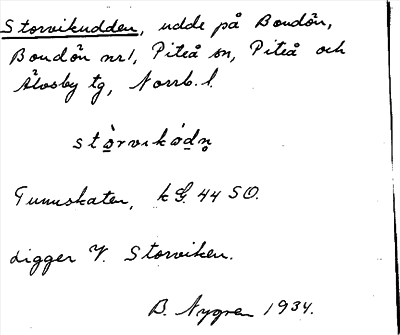 Storvikudden, udde på Bondön,
Bondön nr 1, Piteå sn, Piteå och
Älvsby tg, Norrb. l.
stòrvikódn̥
Gunnskaten, kG. 44 SO.
Ligger V. Storviken.
B. Nygren 1934.